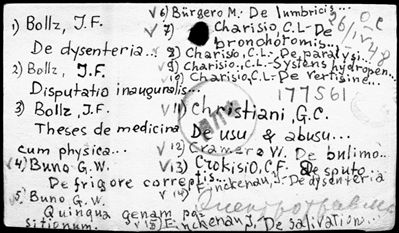 1) Bollz, J.F.
De dysenteria...
2) Bollz, J.F.
Disputatio inauguralis...
3) Bollz, J.F.
Theses de medicina
cum physica...
4) Buno G.W.
De frigore correptis...
5) Buno G.W.
Quinqua genam pas
sitionum.
6) Bürgero M.- De lumbricis...
7) Charisio C.L.- De
bronchotomis...
8) Charisio, C.L.- De paralysi...
9) Charisio, C.L.- Systens hydropem...
10) Charisio, C.L.- De vertigine...
177561
11) Christiani, G.C.
De usu & abusu...
12) Cramero W. De bulimo...
13) Crokisio, C.F. De sputo
14) Einckenau, J.- De dysenteria
15) Einckenau, J. De salivation...
26/IV 48